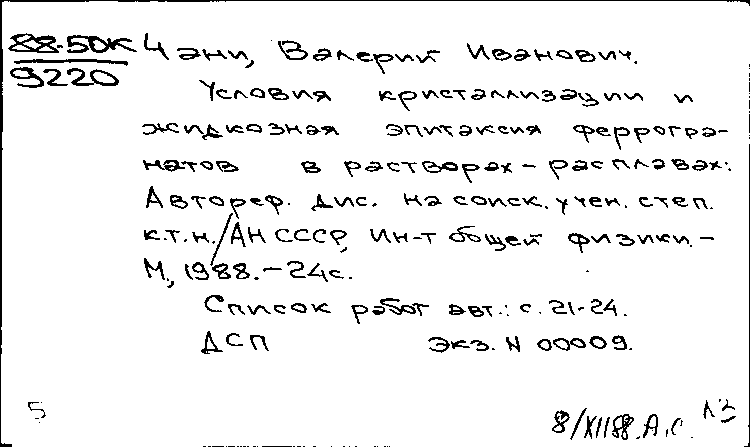 88-50К Чани, Валерий Иванович.
9220
Условия кристаллизации и
жидкозная эпитаксия феррогра-
натов в растворах-расплавах:
Автореф. дис. на соиск. учен. степ.
к.т.н./АН СССР, Ин-т общей физики.-
М, 1988.-24с.
Список работ авт.: с. 21-24.
ДСП Экз. N 00009.
5
8/XII88. А.С.